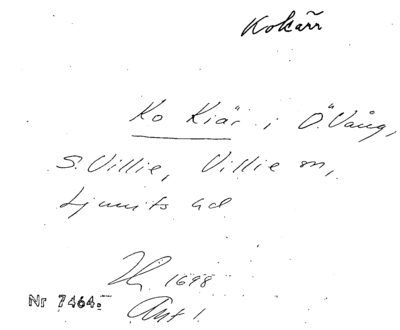 Kokärr
Ko Kiär i Ö. Vång,
S. Villie, Villie sn,
Ljunits hd
1698
Nr 7464. Akt 1.